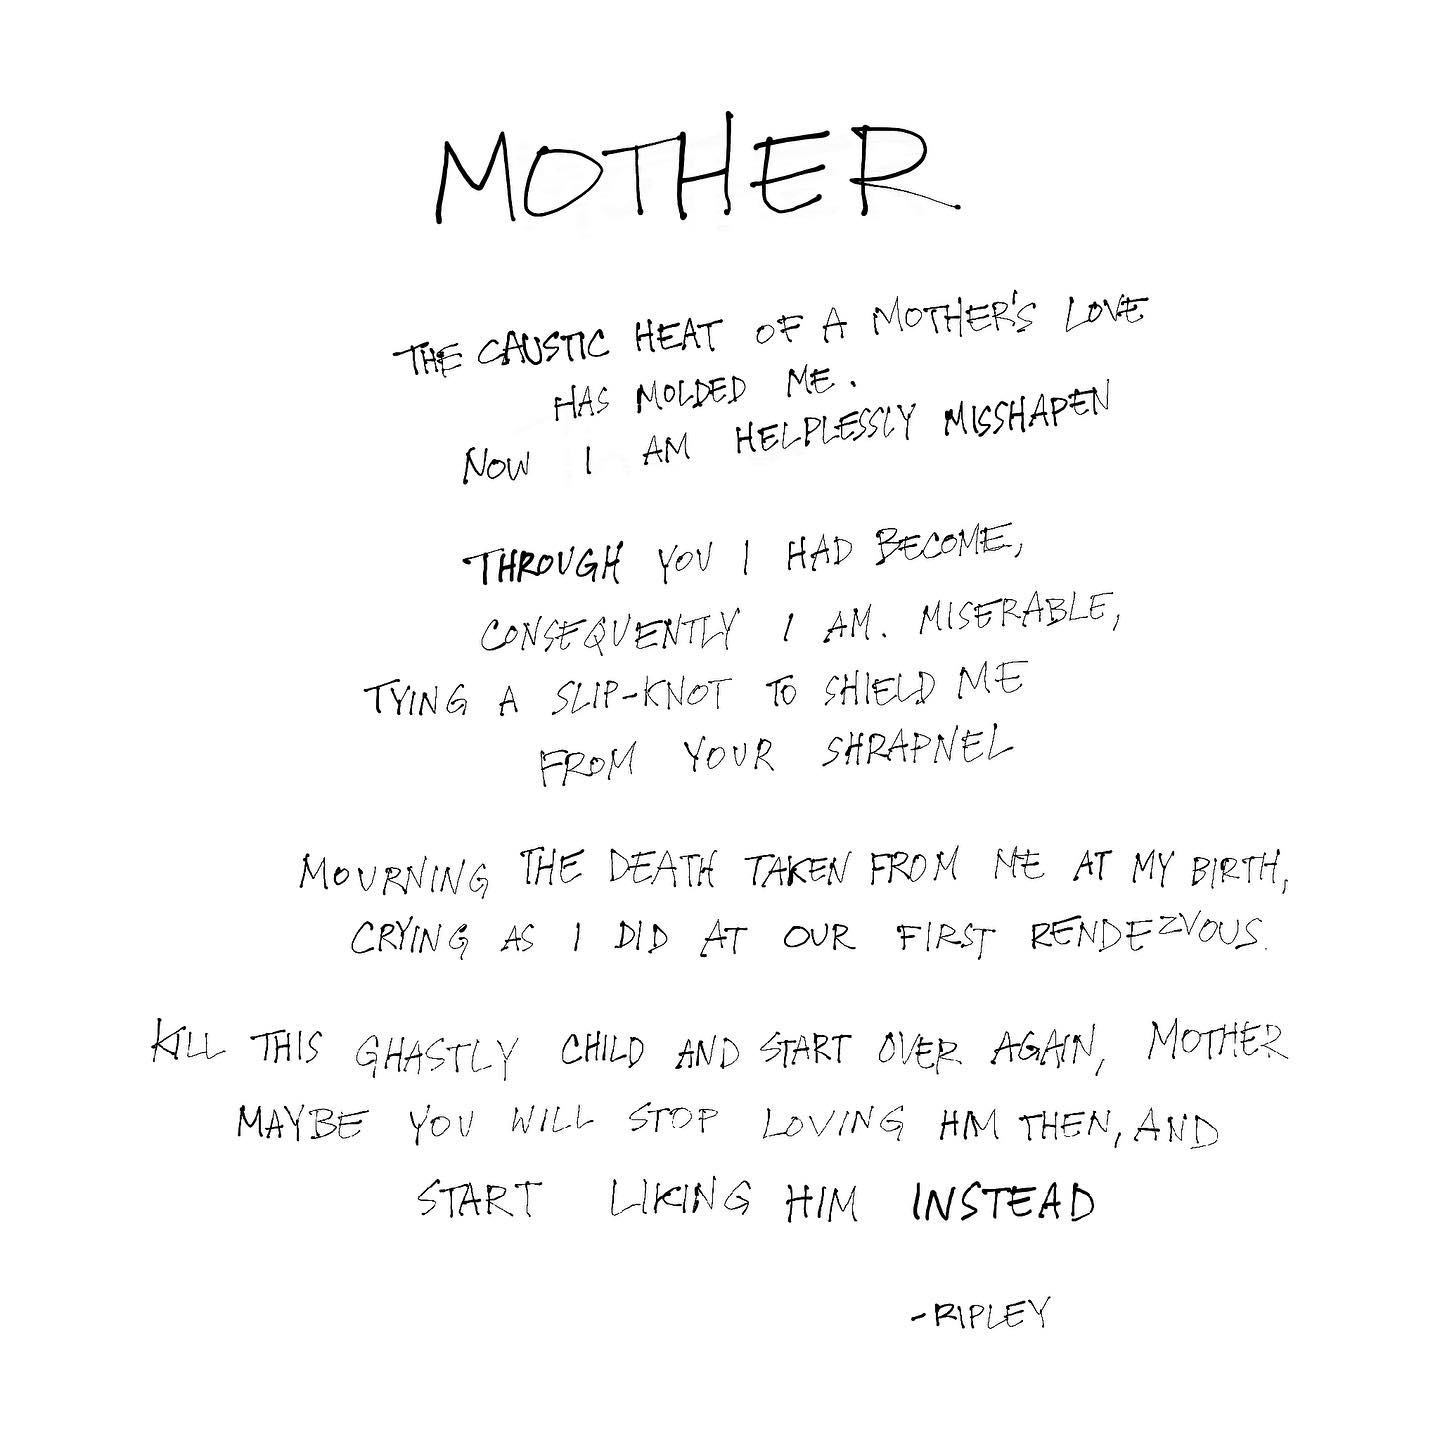 MOTHER
THE CAUSTIC HEAT OF A MOTHER'S LOVE
HAS MOLDED ME.
NOW I AM HELPLESSLY MISSHAPEN
THROUGH YOU I HAD BECOME,
CONSEQUENTLY I AM. MISERABLE,
TYING A SLIP-KNOT TO SHIELD ME
FROM YOUR SHRAPNEL
MOURNING THE DEATH TAKEN FROM ME AT MY BIRTH,
CRYING AS I DID AT OUR FIRST RENDEZVOUS.
KILL THIS GHASTLY CHILD AND START OVER AGAIN, MOTHER
MAYBE YOU WILL STOP LOVING HIM THEN, AND
START LIKING HIM INSTEAD
-RIPLEY